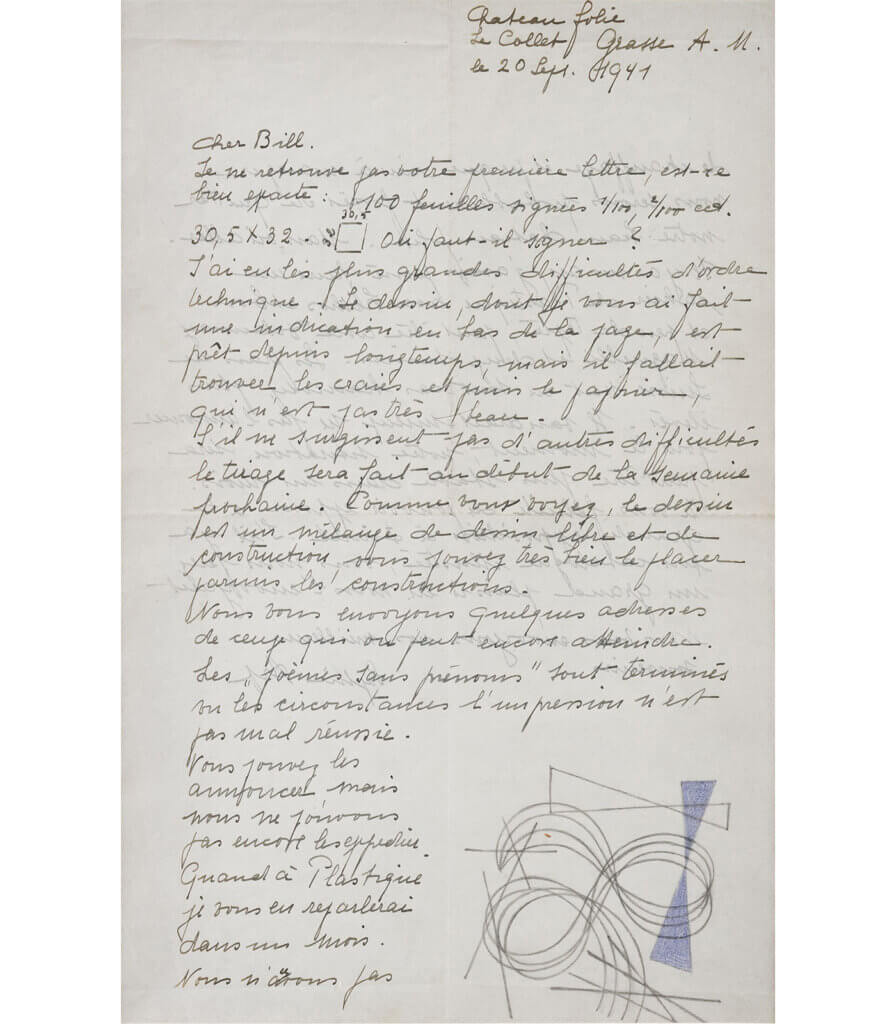 Chateau folie
Le Collet, Grasse A. M.
le 20 Sept. 1941
Cher Bill.
Je ne retrouve pas votre première lettre, est-ce
bien exacte : 100 feuilles signées 1/100, 2/100 ect.
30,5 X 32 . 30,5 32 Où faut-il signer ?
J'ai eu les plus grandes difficultés d'ordre
technique . Le dessin, dont je vous ai fait
une indication en bas de la page, est
prêt depuis longtemps, mais il fallait
trouver les craies et puis le papier,
qui n'est pas très beau .
S'il ne surgissent pas d'autres difficultés
le tirage sera fait au début de la semaine
prochaine . Comme vous voyez, le dessin
est un mélange de dessin libre et de
construction, vous pouvez très bien le placer
parmis les constructions .
Nous vous envoyons quelques adresses
de ceux qui on peut encore atteindre .
Les „poèmes sans prénoms" sont terminés
vu les circonstances l'impression n'est
pas mal réussie .
Vous pouvez les
annoncer mais
nous ne pouvons
pas encore les expédier
Quand à Plastique
je vous en reparlerai
dans un mois .
Nous n'avons pas